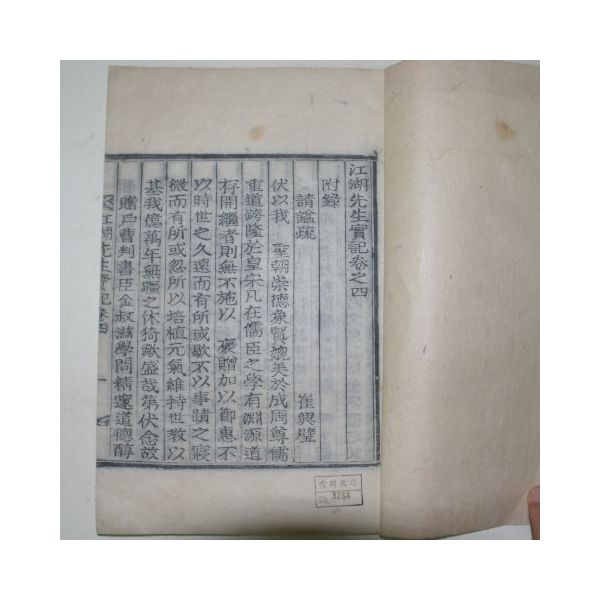 江湖先生實記卷之四
附錄
請謚疏 崔興璧
伏以我 聖朝崇德象賢媲美於成周尊儒
重道跨隆於皇宋凡在儒臣之學有淵源道
存開繼者則無不施以 褒贈加以節惠不
以時世之久遠而有所或歇不以事蹟之寢
微而有所或忽所以培植元氣維持世敎以
基我億萬年無疆之休猗歟盛哉第伏念故
贈戶曹判書臣金叔滋學問精邃道德醇
江湖先生實記卷四 一